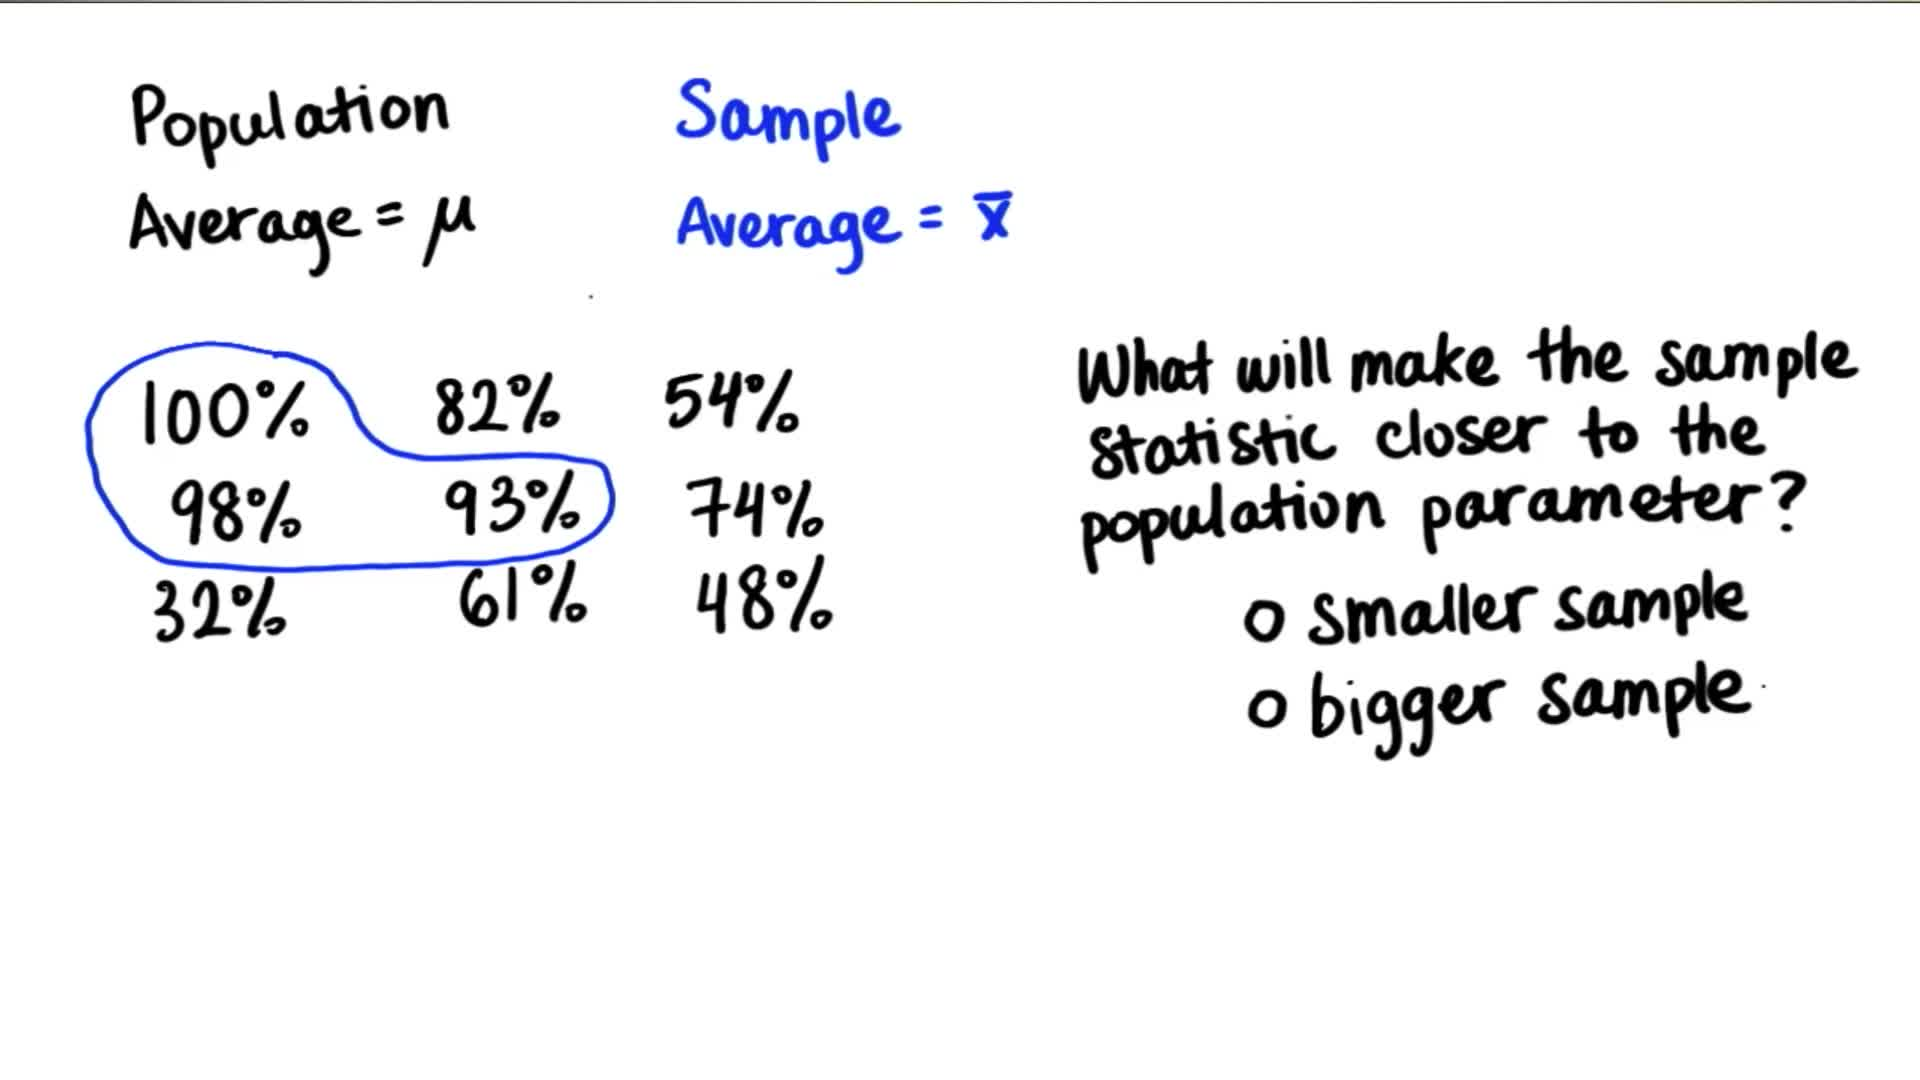 Population
Average = μ
Sample
Average = x̄
100% 82% 54%
98% 93% 74%
32% 61% 48%
What will make the sample
statistic closer to the
population parameter?
o smaller sample
o bigger sample